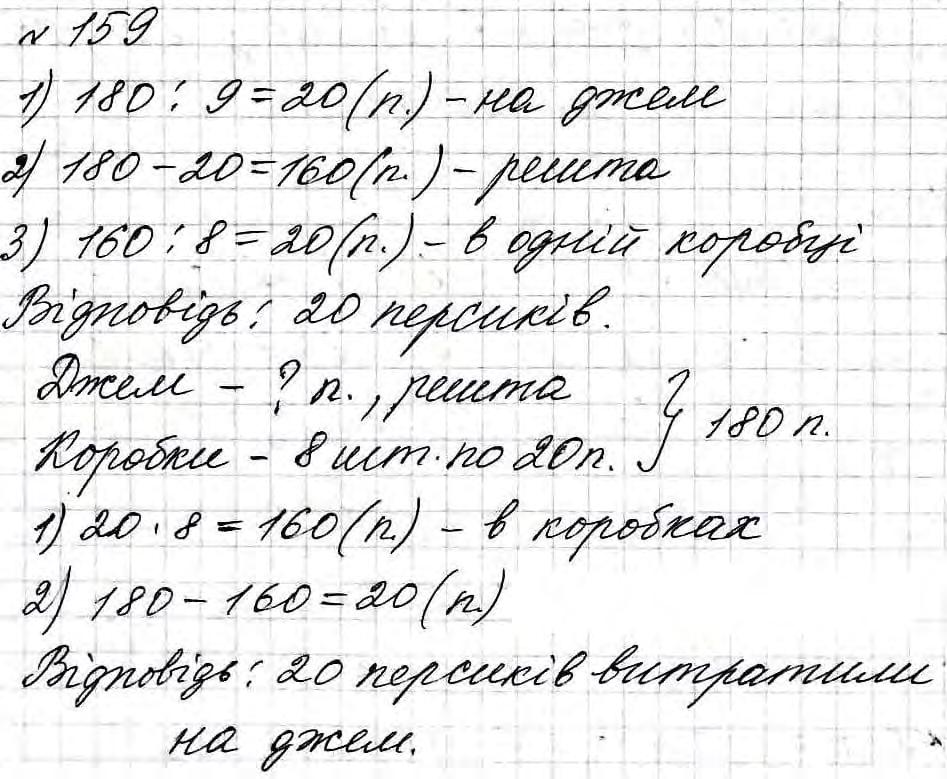 № 159
1) 180 : 9 = 20 (п.) – на джем
2) 180 – 20 = 160 (п.) – решта
3) 160 : 8 = 20 (п.) – в одній коробці
Відповідь: 20 персиків.
Джем – ? п., решта
Коробки – 8 шт. по 20 п. } 180 п.
1) 20 · 8 = 160 (п.) – в коробках
2) 180 – 160 = 20 (п.)
Відповідь: 20 персиків витратили
на джем.